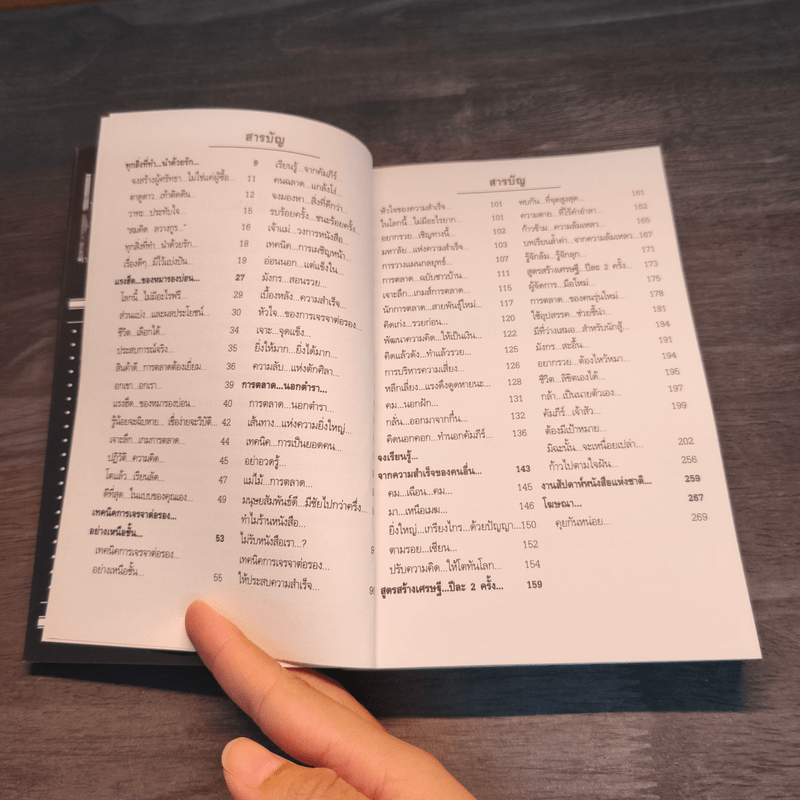 สารบัญ
ทุกสิ่งที่ทำ...นำด้วยรัก... 9
จงสร้างผู้ศรัทธา...ไม่ใช่แค่ผู้ซื้อ... 11
ตาดูดาว...เท้าติดดิน... 12
วาทะ...ประทับใจ... 15
"สมคิด ลวางกูร..." 16
ทุกสิ่งที่ทำ...นำด้วยรัก... 18
เรื่องดีๆ...มีไว้แบ่งปัน... 19
แรงฮึด...ของหมารองบ่อน... 27
โลกนี้...ไม่มีอะไรฟรี... 29
ส่วนแบ่ง...และผลประโยชน์... 30
ชีวิต...เลือกได้... 34
ประสบการณ์จริง... 35
สินค้าดี...การตลาดต้องเยี่ยม... 36
อกเขา...อกเรา... 39
แรงฮึด...ของหมารองบ่อน... 40
รู้น้อยจะฉิบหาย...เชื่อง่ายจะวิบัติ... 42
เจาะลึก...เกมการตลาด... 44
ปฏิวัติ...ความคิด... 45
โตแล้ว...เรียนลัด... 47
ดีที่สุด...ในแบบของคุณเอง... 49
เทคนิคการเจรจาต่อรอง...
อย่างเหนือชั้น... 53
เทคนิคการเจรจาต่อรอง...
อย่างเหนือชั้น... 55
เรียนรู้...จากคัมภีร์
คนฉลาด...แกล้งโง่
จงมองหา...สิ่งที่ดีกว่า...
รบร้อยครั้ง...ชนะร้อยครั้ง...
เจ้าแม่...วงการหนังสือ...
เทคนิค...การเผชิญหน้า...
อ่อนนอก...แต่แข็งใน...
มังกร...สอนรวย...
เบื้องหลัง...ความสำเร็จ...
หัวใจ...ของการเจรจาต่อรอง...
เจาะ...จุดแข็ง...
ยิ่งให้มาก...ยิ่งได้มาก...
ความลับ...แห่งตักศิลา...
การตลาด...นอกตำรา...
การตลาด...นอกตำรา...
เส้นทาง...แห่งความยิ่งใหญ่...
เทคนิค...การเป็นยอดคน...
อย่าอวดรู้...
แม่ไม้...การตลาด...
มนุษยสัมพันธ์ดี...มีชัยไปกว่าครึ่ง...
ทำไมร้านหนังสือ...
ไม่รับหนังสือเรา...?
เทคนิคการเจรจาต่อรอง...
ให้ประสบความสำเร็จ...
สารบัญ
หัวใจของความสำเร็จ... 101
ในโลกนี้...ไม่มีอะไรยาก... 101
อยากรวย...เชิญทางนี้... 102
มหาลัย...แห่งความสำเร็จ... 103
การวางแผนกลยุทธ์... 107
การตลาด...ฉบับชาวบ้าน... 110
เจาะลึก...เกมส์การตลาด... 115
นักการตลาด...สายพันธุ์ใหม่... 117
คิดเก่ง...รวยก่อน... 120
พัฒนาความคิด...ให้เป็นเงิน... 122
คิดแล้วดัง...ทำแล้วรวย... 125
การบริหารความเสี่ยง... 126
หลีกเลี่ยง...แรงดึงดูดหายนะ... 128
คม...นอกฝัก... 131
กลั่น...ออกมาจากกึ๋น... 132
คิดนอกคอก...ทำนอกคัมภีร์... 136
จงเรียนรู้...
จากความสำเร็จของคนอื่น... 143
คม...เฉือน...คม... 145
มา...เหนือเมฆ... 146
ยิ่งใหญ่...เกรียงไกร...ด้วยปัญญา... 150
ตามรอย...เซียน... 152
ปรับความคิด...ให้โตทันโลก... 154
สูตรสร้างเศรษฐี...ปีละ 2 ครั้ง... 159
พบกัน...ที่จุดสูงสุด... 161
ความตาย...ที่ไร้คำอำลา... 162
ก้าวข้าม...ความล้มเหลว... 165
บทเรียนล้ำค่า...จากความล้มเหลว... 167
รู้จักล้ม...รู้จักลุก... 171
สูตรสร้างเศรษฐี...ปีละ 2 ครั้ง... 173
ผู้จัดการ...มือใหม่... 175
การตลาด...ของคนรุ่นใหม่... 178
ใช้อุปสรรค...ช่วยชี้นำ 181
มีที่ว่างเสมอ...สำหรับนักสู้... 184
มังกร...สะอื้น... 191
อยากรวย...ต้องไหว้หมา... 194
ชีวิต...ลิขิตเองได้... 195
กล้า...เป็นนายตัวเอง... 197
คัมภีร์...เจ้าสัว... 199
ต้องมีเป้าหมาย...
มิฉะนั้น...จะเหนื่อยเปล่า... 202
ก้าวไปตามใจฝัน... 256
งานสัปดาห์หนังสือแห่งชาติ... 259
โฆษณา... 267
คุยกันหน่อย... 269